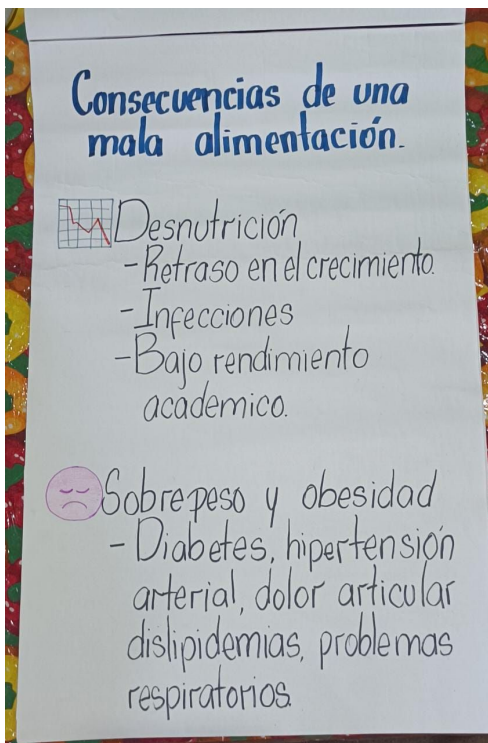 Consecuencias de una
mala alimentación.
Desnutrición
- Retraso en el crecimiento.
- Infecciones
- Bajo rendimiento
academico.
Sobrepeso y obesidad
- Diabetes, hipertensión
arterial, dolor articular
dislipidemias, problemas
respiratorios.